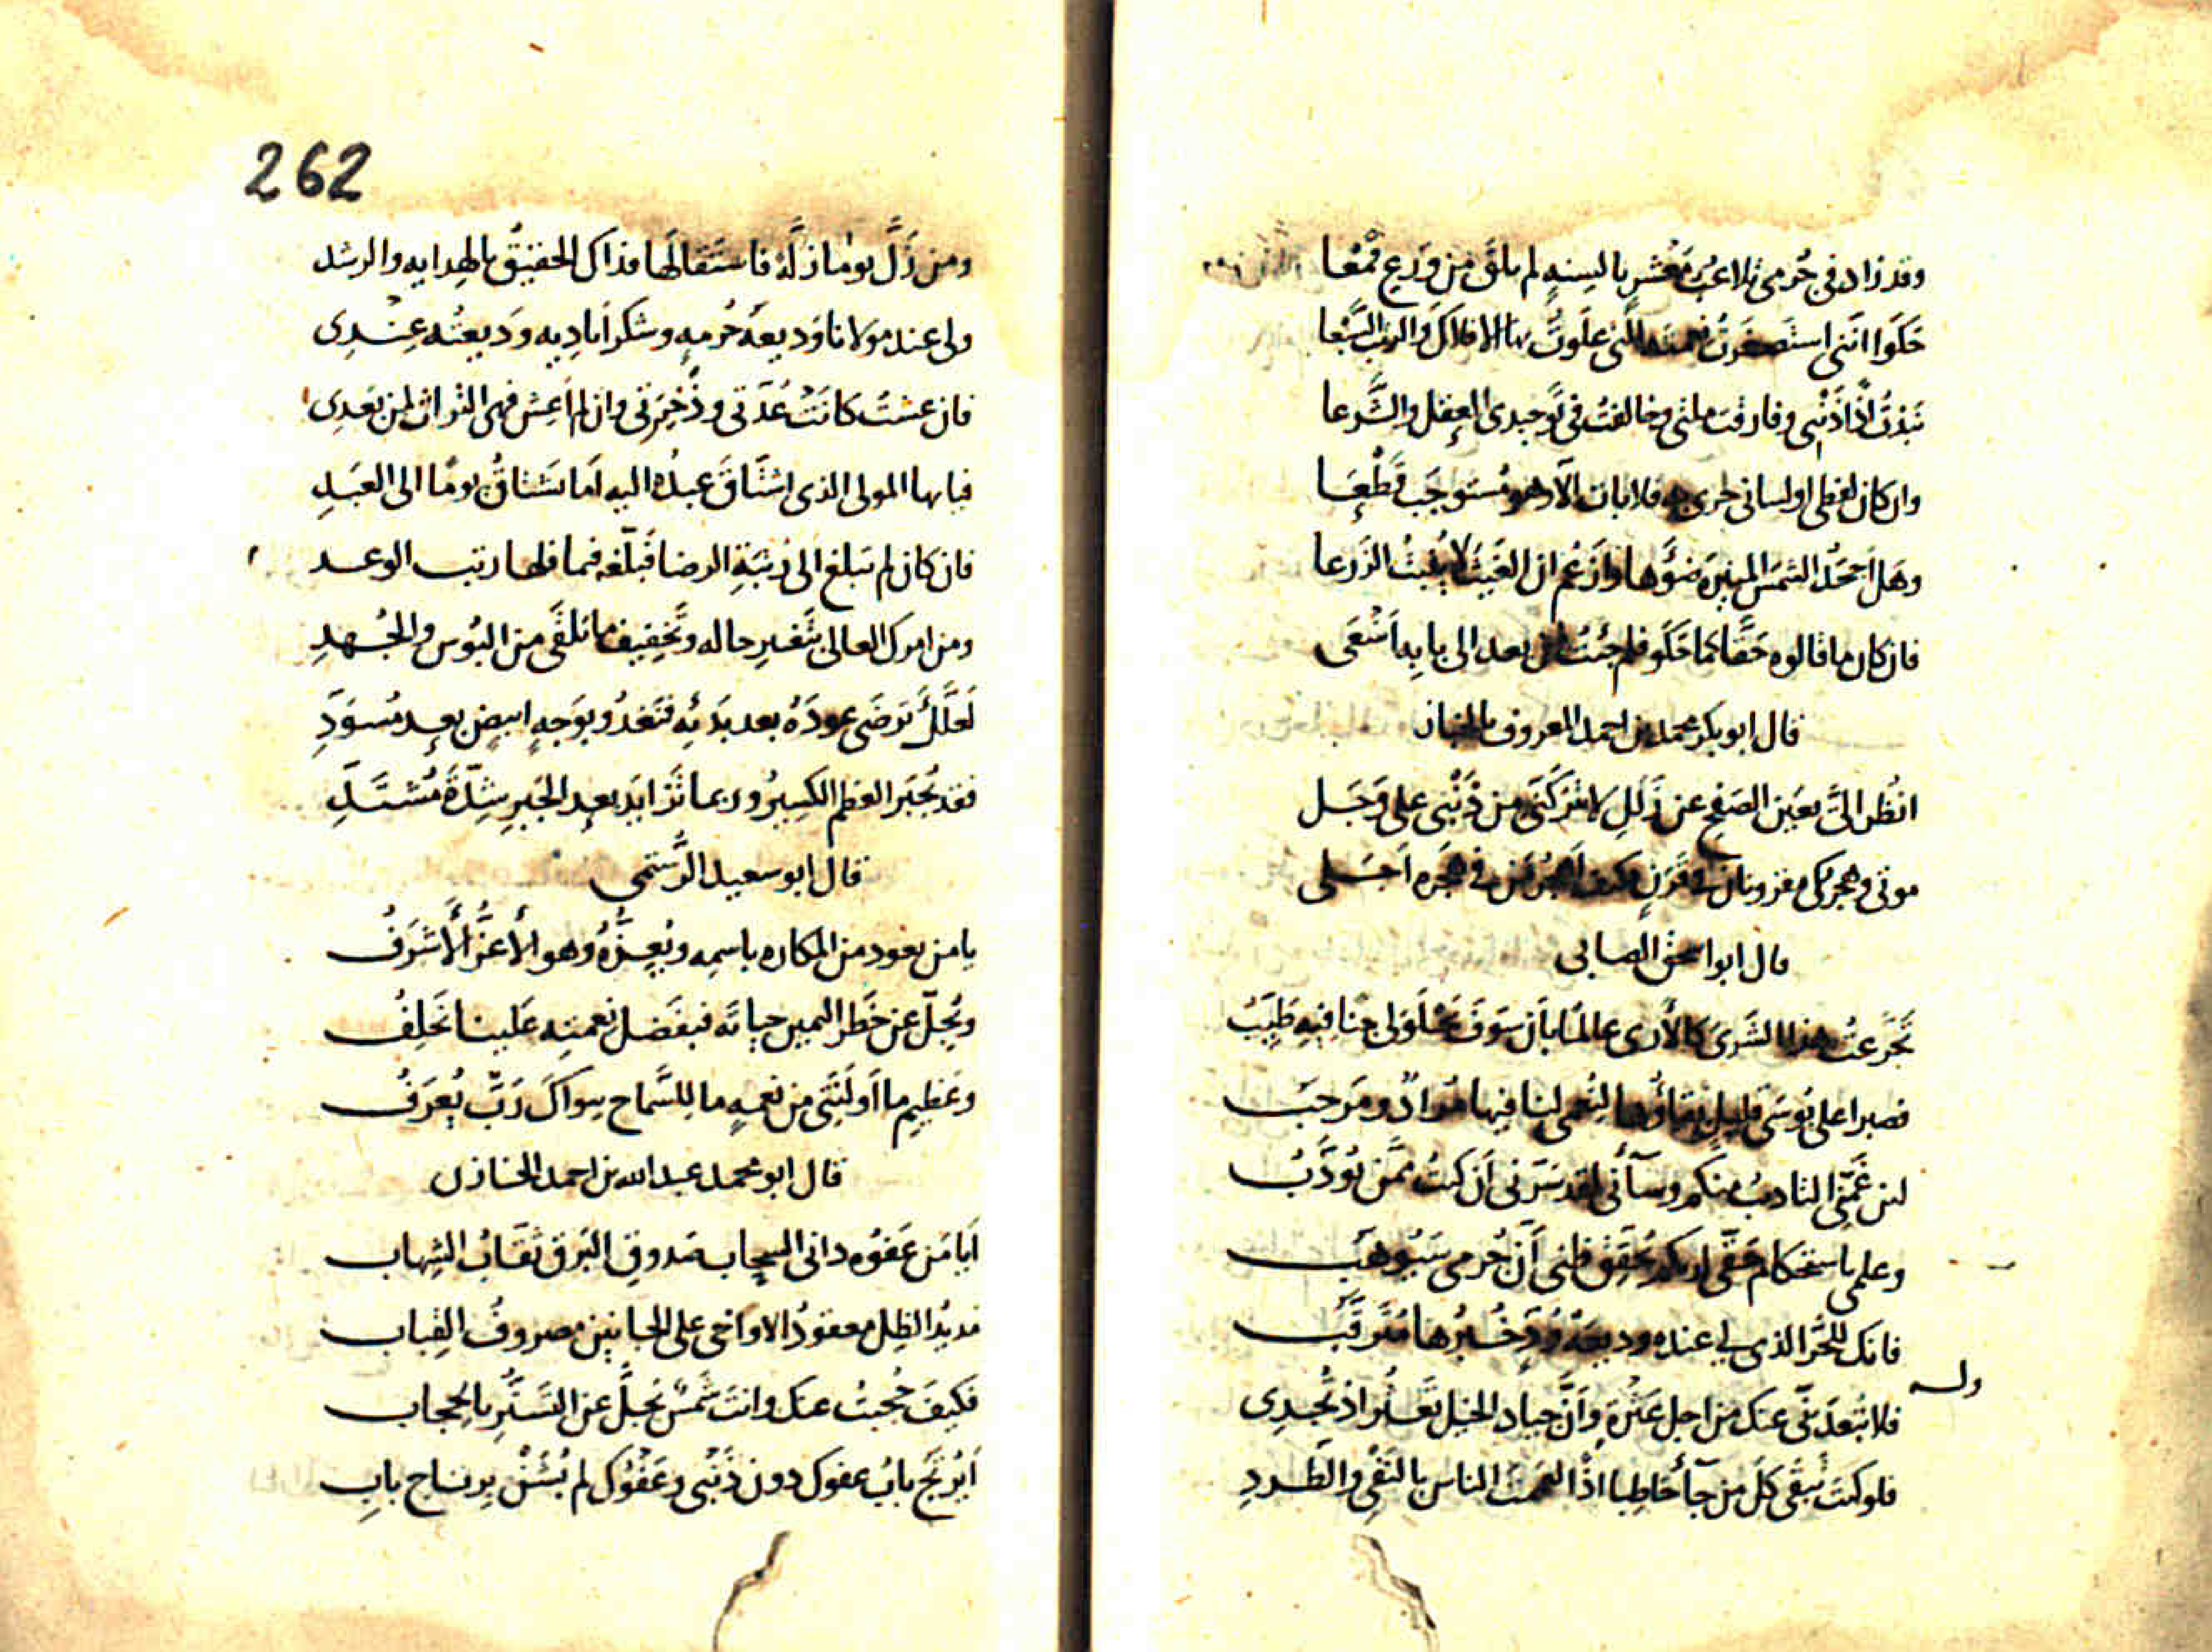 وقد زاد في جُرمي تلاعبُ مَعْشرٍ بالسِنةٍ لم يلقَ من وَرَعٍ قمْعَا
حَكَوا انّني استصغرتُ نعمته التي علَوتُ بها الافلاكَ والرتبَ السَبْعا
نَبَذتُ اذًا ذَنْبي وفارقت ملتي وخالفتُ في تَوحيدي العقل والشَّرعا
وان كان لفظي او لساني جرى به فلا بات الّا وهو مُستوجب قَطْعَا
وهل اَجحَدُ الشمسَ المنيرَة ضوُها وازعُم ان الغيثَ لا يُنبِتُ الزَرعا
فان كان ما قالوه حَقّا كما حَكَو فلم جئتُ من بعد الى بابه اَسْعَى
قال ابو بكر محمد بن احمد المعروف بالخباز
انظُر اليَّ بعَين الصَفح عن زَلَلي لا تتركَنّي من ذَنْبي على وَجَل
موتي وهجرك مقرونان في قَرَنٍ وكيف اَهجُر مَن في هَجره اَجَلي
قال ابو اسحق الصابى
تَجرّعتُ هذا الشَريَ كالأرى عالمًا بأن سَوفَ يَحْلَولي جنًا فيهِ طَيِّبُ
فصبرا على بُوسَى قليلٍ بقاؤُها لنُعمى لنا فيها مُرادٌ ومَرحَبُ
لئن غَمّني التاديبُ منكم وسآني لقد سَرّني أن كنتُ ممَّن يُؤَدَّبُ
وعلمي باستحكام حَقّي لديكم يُحَقِّق ظني أنّ جُرمي سَيُوهَب
فانك للحُرُّ الذي لي عنده وديعةُ وُدٍّ خَيرُها مُترقَّبُ
وله
فلا تُبعِدَنّي عنك من اجل عَثرةٍ وانَّ جياد الخيل تَعثُر اذ تُجدِى
فلو كنتَ تَبقي كلَّ من جآ خاطبا اذًا لعممت الناس بالنَفْي والطَردِ
262
ومن زَلَّ يوما زلّةً فاستَقالها فذاك الحقيقُ بالهدايه والرشد
ولي عند مولانا وَديعةُ حُرمهٍ وشكرُ اَياديه وَديعتُه عِنْدِى
فان عشتُ كانَتْ عُدّتي وذَخِيرَتي وان لم اَعِش فهي التُراثُ لمن بَعْدِى
فيا ايها المولى الذي اشتَاقَ عبدُه اليه اَما تَشتاقُ يومًا الى العَبَدِ
فان كان لم تبلغ الى رُتبَةِ الرضا فبَلّغه فيما قلها رتب الوعد
ومن امرك العالى تَغيير حاله وتخفيف ما تلقّى من البُوس والجُهدِ
لَعَلَّكَ تَرضَى عَودَهُ بعد بَدئِه فتَغدُو بوَجهٍ ابيضٍ بعد مُسوَدِّ
فقد يُجبَر العَظم الكسيرُ وربما تَزايَد بعد الجَبرِ شِدّةَ مُشتَدِّ
قال ابو سعيد الرُستمي
يا من يعود من المكاره باسمِه وبُعِزُّهُ وهو الأعَزُّ الأشرَفُ
ونُجِلّ عن خَطَر اليمين حياتَه فبفَضل نعمتِه عَلينا نَحلِفُ
وعَظيمِ ما اَولَيتَني من نعمةٍ ما للسَّماح سِواكَ رَبٌّ يُعرَفُ
قال ابو محمد عبد الله بن احمد الخازن
اَيا مَن عَفوُه داني السحاب صَدوق البَرق ثَقّابُ الشِهاب
مديدُ الظِل معقودُ الاواخي على الجانين مصروفُ القِباب
فكيفَ حُجبتُ عنك وانتَ شمسٌ تَجلَّ عن التَستُّر بالحِجاب
اَيُرتَج بابُ عفوك دون ذَنبي وعَفْوُك لم يُشَنْ برتاج بابِ